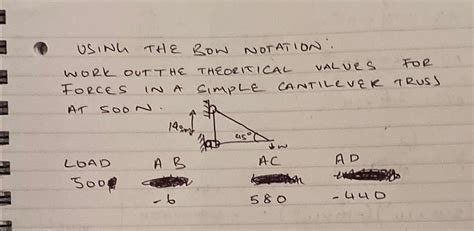 USING THE BOW NOTATION:
WORK OUT THE THEORITICAL VALUES FOR
FORCES IN A SIMPLE CANTILEVER TRUSS
AT 500N.
45°
W
LOAD AB AC AD
500
-6 580 -440